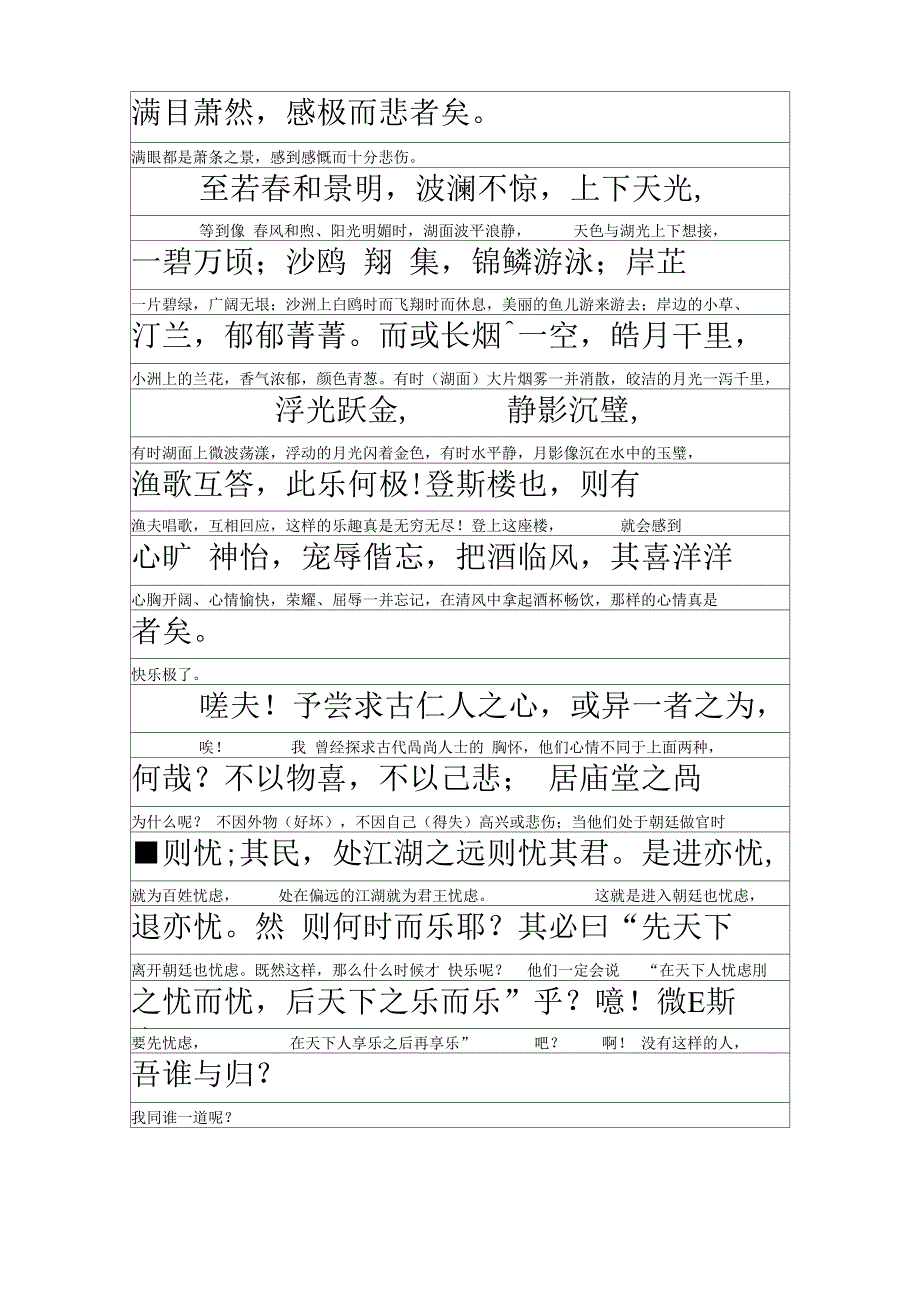 满目萧然，感极而悲者矣。
满眼都是萧条之景，感到感慨而十分悲伤。
至若春和景明，波澜不惊，上下天光,
等到像 春风和煦、阳光明媚时，湖面波平浪静， 天色与湖光上下想接，
一碧万顷；沙鸥 翔 集，锦鳞游泳；岸芷
一片碧绿，广阔无垠；沙洲上白鸥时而飞翔时而休息，美丽的鱼儿游来游去；岸边的小草、
汀兰，郁郁菁菁。而或长烟^一空，皓月干里，
小洲上的兰花，香气浓郁，颜色青葱。有时（湖面）大片烟雾一并消散，皎洁的月光一泻千里，
浮光跃金, 静影沉璧,
有时湖面上微波荡漾，浮动的月光闪着金色，有时水平静，月影像沉在水中的玉璧，
渔歌互答，此乐何极!登斯楼也，则有
渔夫唱歌，互相回应，这样的乐趣真是无穷无尽！登上这座楼， 就会感到
心旷 神怡，宠辱偕忘，把酒临风，其喜洋洋
心胸开阔、心情愉快，荣耀、屈辱一并忘记，在清风中拿起酒杯畅饮，那样的心情真是
者矣。
快乐极了。
嗟夫！予尝求古仁人之心，或异一者之为，
唉！ 我 曾经探求古代咼尚人士的 胸怀，他们心情不同于上面两种，
何哉？不以物喜，不以己悲； 居庙堂之咼
为什么呢？ 不因外物（好坏）, 不因自己（得失）高兴或悲伤；当他们处于朝廷做官时
■则忧;其民，处江湖之远则忧其君。是进亦忧,
就为百姓忧虑， 处在偏远的江湖就为君王忧虑。 这就是进入朝廷也忧虑，
退亦忧。然 则何时而乐耶？其必曰“先天下
离开朝廷也忧虑。既然这样，那么什么时候才 快乐呢？ 他们一定会说 “在天下人忧虑刖
之忧而忧，后天下之乐而乐”乎？噫！微E斯
要先忧虑， 在天下人享乐之后再享乐” 吧？ 啊！ 没有这样的人，
吾谁与归？
我同谁一道呢？